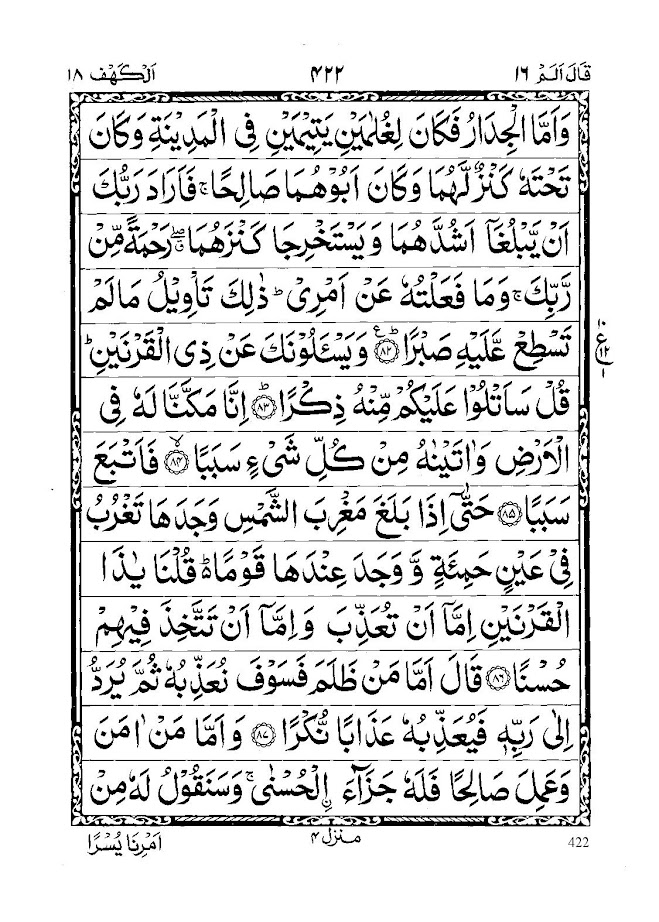 قَالَ اَلَمْ ١٦ ۴۲۲ اَلْكَهْف ١٨
وَاَمَّا الْجِدَارُ فَكَانَ لِغُلٰمَيْنِ يَتِيْمَيْنِ فِى الْمَدِيْنَةِ وَكَانَ
تَحْتَهٗ كَنْزٌ لَّهُمَا وَكَانَ اَبُوْهُمَا صَالِحًا ۚ فَاَرَادَ رَبُّكَ
اَنْ يَّبْلُغَاۤ اَشُدَّهُمَا وَيَسْتَخْرِجَا كَنْزَهُمَا ۖ رَحْمَةً مِّنْ
رَّبِّكَ ۚ وَمَا فَعَلْتُهٗ عَنْ اَمْرِىْ ؕ ذٰلِكَ تَاْوِيْلُ مَا لَمْ
تَسْطِعْ عَّلَيْهِ صَبْرًا ؕ ﴿۸۲﴾ ع وَيَسْـَٔلُوْنَكَ عَنْ ذِى الْقَرْنَيْنِ ؕ
١٠ ع ١٢ ١
قُلْ سَاَتْلُوْا عَلَيْكُمْ مِّنْهُ ذِكْرًا ؕ ﴿۸۳﴾ اِنَّا مَكَّنَّا لَهٗ فِى
الْاَرْضِ وَاٰتَيْنٰهُ مِنْ كُلِّ شَىْءٍ سَبَبًا ۙ ﴿۸۴﴾ فَاَتْبَعَ
سَبَبًا ﴿۸۵﴾ حَتّٰٓى اِذَا بَلَغَ مَغْرِبَ الشَّمْسِ وَجَدَهَا تَغْرُبُ
فِىْ عَيْنٍ حَمِئَةٍ وَّ وَجَدَ عِنْدَهَا قَوْمًا ؕ قُلْنَا يٰذَا
الْقَرْنَيْنِ اِمَّاۤ اَنْ تُعَذِّبَ وَاِمَّاۤ اَنْ تَتَّخِذَ فِيْهِمْ
حُسْنًا ﴿۸۶﴾ قَالَ اَمَّا مَنْ ظَلَمَ فَسَوْفَ نُعَذِّبُهٗ ثُمَّ يُرَدُّ
اِلٰى رَبِّهٖ فَيُعَذِّبُهٗ عَذَابًا نُّكْرًا ﴿۸۷﴾ وَاَمَّا مَنْ اٰمَنَ
وَعَمِلَ صَالِحًا فَلَهٗ جَزَآءَ ۨالْحُسْنٰى ۚ وَسَنَقُوْلُ لَهٗ مِنْ
422 منزل ۴ اَمْرِنَا يُسْرًا